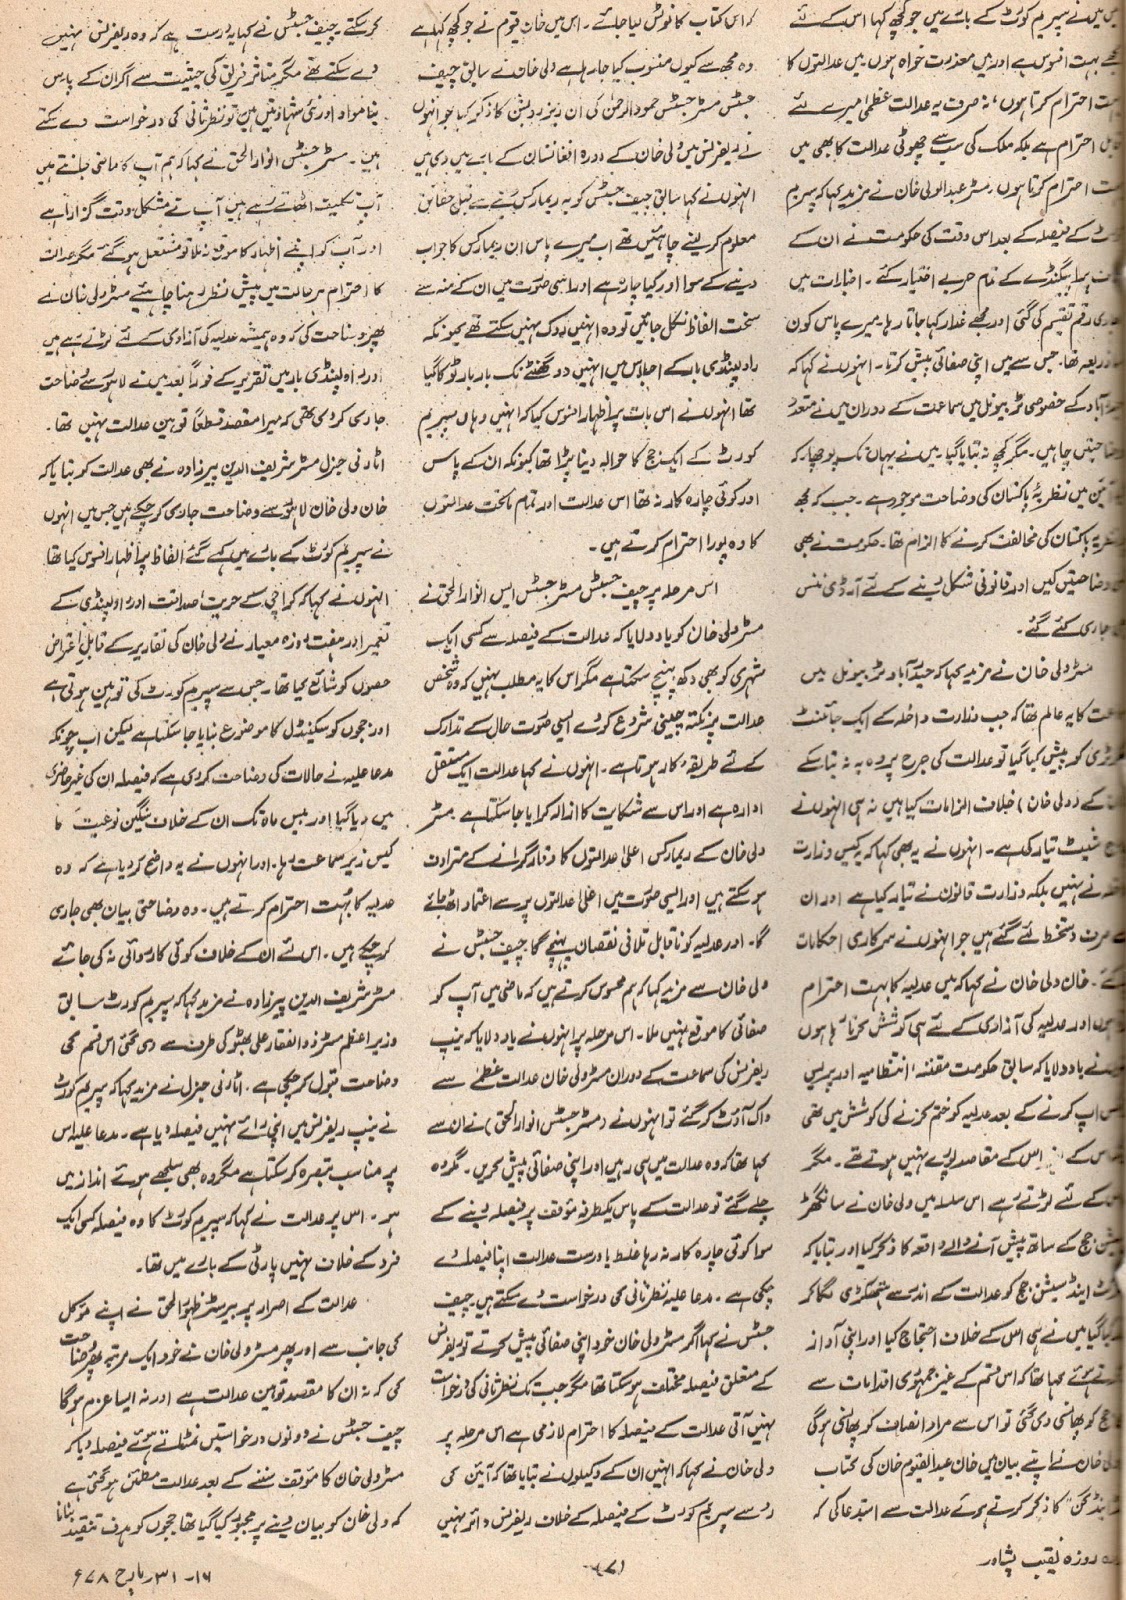 میں نے سپریم کورٹ کے بارے میں جو کچھ کہا اس کے لئے
مجھے بہت افسوس ہے اور میں معذرت خواہ ہوں میں عدالتوں کا
بہت احترام کرتا ہوں، نہ صرف یہ عدالت عظمیٰ میرے لئے
قابل احترام ہے بلکہ ملک کی سب سے چھوٹی عدالت کا بھی میں
بہت احترام کرتا ہوں۔ مسٹر عبدالولی خان نے مزید کہا کہ سپریم
کورٹ کے فیصلہ کے بعد اس وقت کی حکومت نے ان کے
خلاف پراپیگنڈے کے تمام حربے اختیار کئے۔ اخبارات میں
بھاری رقم تقسیم کی گئی اور مجھے غدار کہا جاتا رہا۔ میرے پاس کون
سا ذریعہ تھا۔ جس سے میں اپنی صفائی پیش کرتا۔ انہوں نے کہا کہ
حیدرآباد کے خصوصی ٹربیونل میں سماعت کے دوران میں نے متعدد
وضاحتیں چاہیں۔ مگر کچھ نہ بتایا گیا میں نے یہاں تک پوچھا۔ کہ
آئین میں نظریہ پاکستان کی وضاحت موجود ہے۔ جب کہ مجھ
نظریہ پاکستان کی مخالفت کرنے کا الزام تھا۔ حکومت نے بھی
وضاحتیں کیں اور قانونی شکل دینے کے لئے آرڈی ننس
جاری کئے گئے۔
مسٹر ولی خان نے مزید کہا کہ حیدرآباد ٹربیونل میں
کا یہ عالم تھا کہ جب وزارت داخلہ کے ایک جائنٹ
سیکرٹری کو پیش کیا گیا تو عدالت کی جرح پر وہ یہ نہ بتا سکے
کے (ولی خان) خلاف الزامات کیا ہیں نہ ہی انہوں نے
شیٹ تیار کی ہے۔ انہوں نے یہ بھی کہا کہ یہ کیس وزارت
داخلہ نے نہیں بلکہ وزارت قانون نے تیار کیا ہے اور ان
صرف دستخط لئے گئے ہیں جو انہوں نے سرکاری احکامات
کئے۔ خان ولی خان نے کہا کہ میں عدلیہ کا بہت احترام
ہوں اور عدلیہ کی آزادی کے لئے ہی کوشش کرتا رہا ہوں
نے یاد دلایا کہ سابق حکومت مقننہ، انتظامیہ اور پریس
اپ کرنے کے بعد عدلیہ کو ختم کرنے کی کوشش میں تھی
اس کے مقاصد پورے نہیں ہوتے تھے۔ مگر
کے لئے لڑتے رہے اس سلسلہ میں ولی خان نے سانگھڑ
سیشن جج کے ساتھ پیش آنے والے واقعہ کا ذکر کیا اور بتایا کہ
ڈسٹرکٹ اینڈ سیشن جج کو عدالت کے اندر سے ہتھکڑی لگا کر
گیا میں نے ہی اس کے خلاف احتجاج کیا اور اپنی آواز
ہوئے کہا تھا کہ اس قسم کے غیر جمہوری اقدامات سے
جج کو پھانسی دی گئی تو اس سے مراد انصاف کو پھانسی ہوگی
ولی خان نے اپنے بیان میں خان عبدالقیوم خان کی کتاب
کا ذکر کرتے ہوئے عدالت سے استدعا کی کہ
روزہ نقیب پشاور
کہ اس کتاب کا نوٹس لیا جائے۔ اس میں خان قیوم نے جو کچھ کہا ہے
وہ مجھ سے کیوں منسوب کیا جا رہا ہے ولی خان نے سابق چیف
جسٹس مسٹر جسٹس حمود الرحمٰن کی ان کا ذکر کیا جو انہوں
نے ریفرنس میں ولی خان کے دورہ افغانستان کے بارے میں دی ہیں
انہوں نے کہا سابق چیف جسٹس کو یہ ریمارکس دینے سے قبل حقائق
معلوم کر لینے چاہئیں تھے اب میرے پاس ان ریمارکس کا جواب
دینے کے سوا اور کیا چارہ ہے اور ایسی صورت میں ان کے منہ سے
سخت الفاظ نکل جائیں تو وہ انہیں روک نہیں سکتے تھے کیونکہ
راولپنڈی بار کے اجلاس میں انہیں دو گھنٹے تک بار بار ٹوکا گیا
تھا انہوں نے اس بات پر اظہار افسوس کیا کہ انہیں وہاں سپریم
کورٹ کے ایک جج کا حوالہ دینا پڑا تھا کیونکہ ان کے پاس
اور کوئی چارہ کار نہ تھا اس عدالت اور تمام ماتحت عدالتوں
کا وہ پورا احترام کرتے ہیں۔
اس مرحلہ پر چیف جسٹس مسٹر جسٹس ایس انوار الحق نے
مسٹر ولی خان کو یاد دلایا کہ عدالت کے فیصلہ سے کسی ایک
شہری کو بھی دکھ پہنچ سکتا ہے مگر اس کا یہ مطلب نہیں کہ وہ شخص
عدالت پر نکتہ چینی شروع کر دے ایسی صورت حال کے تدارک
کے لئے طریقۂ کار ہوتا ہے۔ انہوں نے کہا عدالت ایک مستقل
ادارہ ہے اور اس سے شکایت کا ازالہ کرایا جا سکتا ہے مسٹر
ولی خان کے ریمارکس اعلیٰ عدالتوں کا وقار گرانے کے مترادف
ہو سکتے ہیں اور ایسی صورت میں اعلیٰ عدالتوں پر سے اعتماد اٹھ جائے
گا۔ اور عدلیہ کو ناقابل تلافی نقصان پہنچے گا، چیف جسٹس نے
ولی خان سے مزید کہا کہ ہم محسوس کرتے ہیں کہ ماضی میں آپ کو
صفائی کا موقع نہیں ملا۔ اس مرحلہ پر انہوں نے یاد دلایا کہ نیپ
ریفرنس کی سماعت کے دوران مسٹر ولی خان عدالت عظمیٰ سے
واک آؤٹ کر گئے تو انہوں نے (مسٹر جسٹس انوار الحق) نے ان سے
کہا تھا کہ وہ عدالت میں ہی رہیں اور اپنی صفائی پیش کریں۔ مگر وہ
چلے گئے تو عدالت کے پاس یکطرفہ مؤقف پر فیصلہ دینے کے
سوا کوئی چارہ کار نہ رہا غلط یا درست عدالت اپنا فیصلہ دے
چکی ہے۔ مدعا علیہ نظرثانی کی درخواست دے سکتے ہیں۔ چیف
جسٹس نے کہا اگر مسٹر ولی خان خود اپنی صفائی پیش کرتے تو ریفرنس
کے متعلق فیصلہ مختلف ہو سکتا تھا مگر جب تک نظرثانی کی درخواست
نہیں آتی عدالت کے فیصلہ کا احترام لازمی ہے اس مرحلہ پر
ولی خان نے کہا کہ انہیں ان کے وکیلوں نے بتایا تھا کہ آئین کی
رو سے سپریم کورٹ کے فیصلہ کے خلاف ریفرنس دائر نہیں
(۷)
کر سکتے۔ چیف جسٹس نے کہا یہ درست ہے کہ وہ ریفرنس نہیں
دے سکتے تھے مگر متاثر فریق کی حیثیت سے اگر ان کے پاس
نیا مواد اور نئی شہادتیں ہیں تو نظرثانی کی درخواست دے سکتے
ہیں۔ مسٹر جسٹس انوار الحق نے کہا کہ ہم آپ کا ماضی جانتے ہیں
آپ تکلیف اٹھاتے رہے ہیں آپ نے مشکل وقت گزارا ہے
اور آپ کو اپنے اظہار کا موقع نہ ملا تو مشتعل ہو گئے مگر عدالت
کا احترام ہر حالت میں پیش نظر رہنا چاہئیے مسٹر ولی خان نے
پھر وضاحت کی کہ وہ ہمیشہ عدلیہ کی آزادی کے لئے لڑتے رہے ہیں
اور راولپنڈی بار میں تقریر کے فوراً بعد میں نے لاہور سے وضاحت
جاری کر دی تھی کہ میرا مقصد قطعاً توہین عدالت نہیں تھا۔
اٹارنی جنرل مسٹر شریف الدین پیرزادہ نے بھی عدالت کو بتایا کہ
خان ولی خان لاہور سے وضاحت جاری کر چکے ہیں جس میں انہوں
نے سپریم کورٹ کے بارے میں کہے گئے الفاظ پر اظہار افسوس کیا تھا
انہوں نے کہا کہ کراچی کے حریت، صداقت اور راولپنڈی کے
تعمیر اور ہفت روزہ معیار نے ولی خان کی تقاریر کے قابل اعتراض
حصوں کو شائع کیا تھا۔ جس سے سپریم کورٹ کی توہین ہوتی ہے
اور ججوں کو سکینڈل کا موضوع بنایا جا سکتا ہے لیکن اب چونکہ
مدعا علیہ نے حالات کی وضاحت کر دی ہے کہ فیصلہ ان کی غیر حاضری
میں دیا گیا اور بیس ماہ تک ان کے خلاف سنگین نوعیت کا
کیس زیر سماعت رہا۔ اور انہوں نے یہ واضح کر دیا ہے کہ وہ
عدلیہ کا بہت احترام کرتے ہیں۔ وہ وضاحتی بیان بھی جاری
کر چکے ہیں۔ اس لئے ان کے خلاف کوئی کارروائی نہ کی جائے
مسٹر شریف الدین پیرزادہ نے مزید کہا کہ سپریم کورٹ سابق
وزیر اعظم مسٹر ذوالفقار علی بھٹو کی طرف سے دی گئی اس قسم کی
وضاحت قبول کر چکی ہے۔ اٹارنی جنرل نے مزید کہا کہ سپریم کورٹ
نے نیپ ریفرنس میں اپنی رائے نہیں فیصلہ دیا ہے۔ مدعا علیہ اس
پر مناسب تبصرہ کر سکتا ہے مگر وہ بھی سلجھے ہوئے انداز میں
ہو۔ اس پر عدالت نے کہا کہ سپریم کورٹ کا وہ فیصلہ کسی ایک
فرد کے خلاف نہیں پارٹی کے بارے میں تھا۔
عدالت کے اصرار پر بیرسٹر ظہور الحق نے اپنے مؤکل
کی جانب سے اور پھر مسٹر ولی خان نے خود ایک مرتبہ پھر وضاحت
کی کہ نہ ان کا مقصد توہین عدالت ہے اور نہ ایسا عزم ہوگا
چیف جسٹس نے دونوں درخواستیں نمٹاتے ہوئے فیصلہ دیا کہ
مسٹر ولی خان کا مؤقف سننے کے بعد عدالت مطمئن ہو گئی ہے
کہ ولی خان کو بیان دینے پر مجبور کیا گیا تھا ججوں کو ہدف تنقید بنانا
۱۶-۳۱ مارچ ۷۸ء